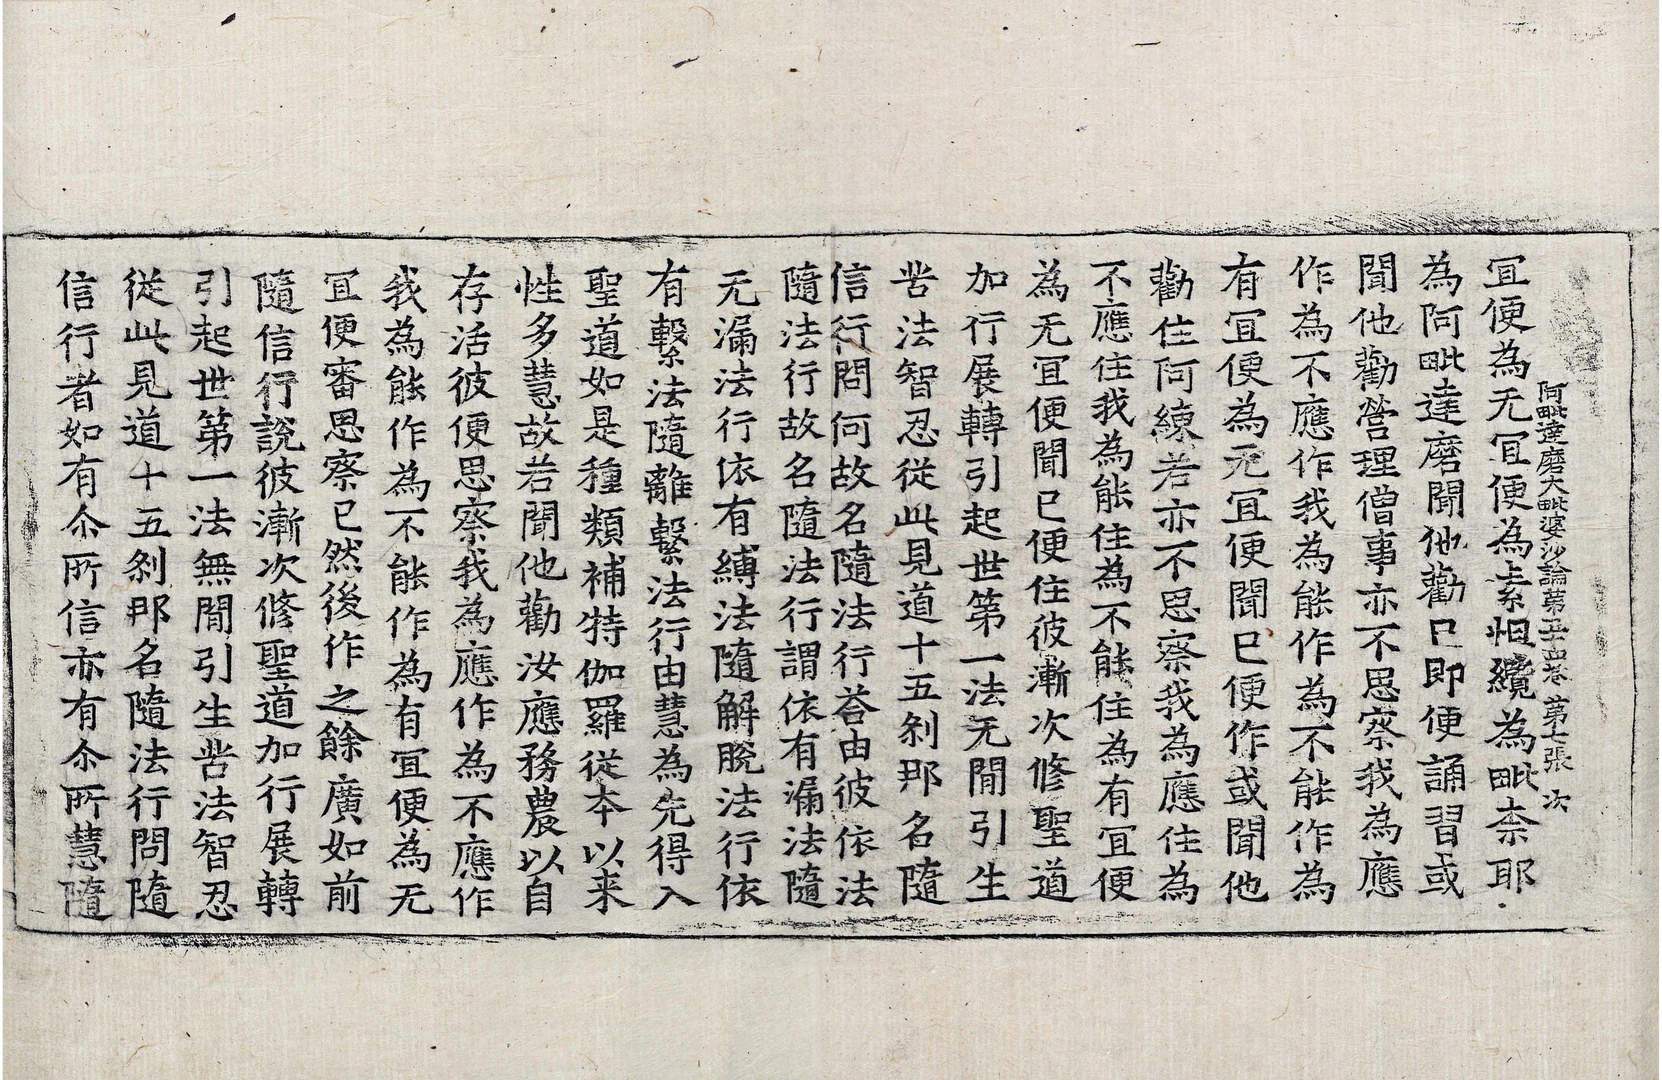 阿毗達磨大毗婆沙論第五十四卷 第七張 次
冝便為无冝便為素怛纜為毗柰耶
為阿毗達磨聞他勸已即便誦習或
聞他勸營理僧事亦不思察我為應
作為不應作我為能作為不能作為
有冝便為无冝便聞已便作或聞他
勸住阿練若亦不思察我為應住為
不應住我為能住為不能住為有冝便
為无冝便聞已便住彼漸次修聖道
加行展轉引起世第一法无閒引生
苦法智忍從此見道十五剎那名隨
信行問何故名隨法行荅由彼依法
隨法行故名隨法行謂依有漏法隨
无漏法行依有縛法隨解脫法行依
有繫法隨離繫法行由慧為先得入
聖道如是種類補特伽羅從本以来
性多慧故若聞他勸汝應務農以自
存活彼便思察我為應作為不應作
我為能作為不能作為有冝便為无
冝便審思察已然後作之餘廣如前
隨信行說彼漸次修聖道加行展轉
引起世第一法無閒引生苦法智忍
從此見道十五剎那名隨法行問隨
信行者如有尒所信亦有尒所慧隨